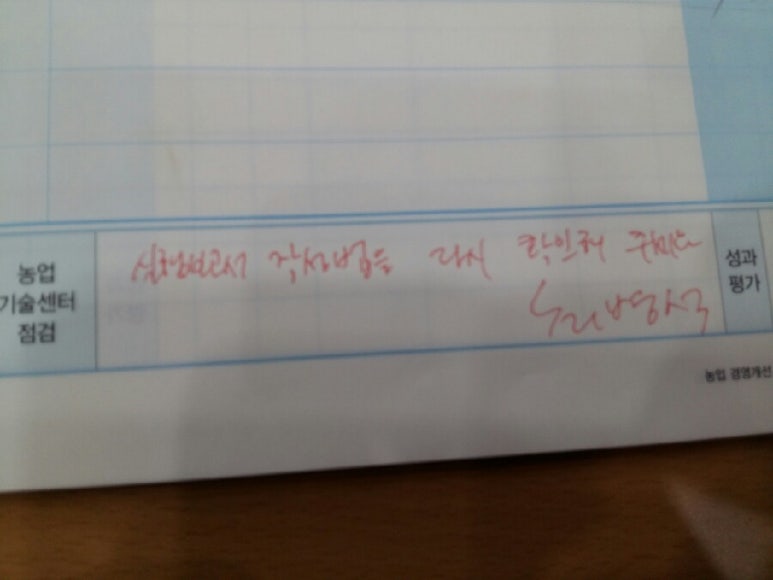 농업
기술센터
점검
실험보고서 작성법을 다시 확인해 주세요
성과
평가
농업 경영개선